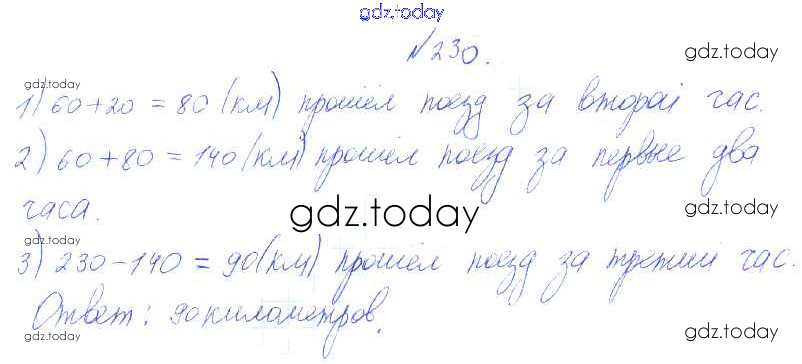 gdz.today
№230.
gdz.today
gdz.today
1) 60+20 = 80 (км) прошёл поезд за второй час.
2) 60+80 = 140 (км) прошёл поезд за первые два
часа.
gdz.today
gdz.today
gdz.today
3) 230-140 = 90 (км) прошёл поезд за третий час.
Ответ: 90 километров.
gdz.today
gdz.today
gdz.today